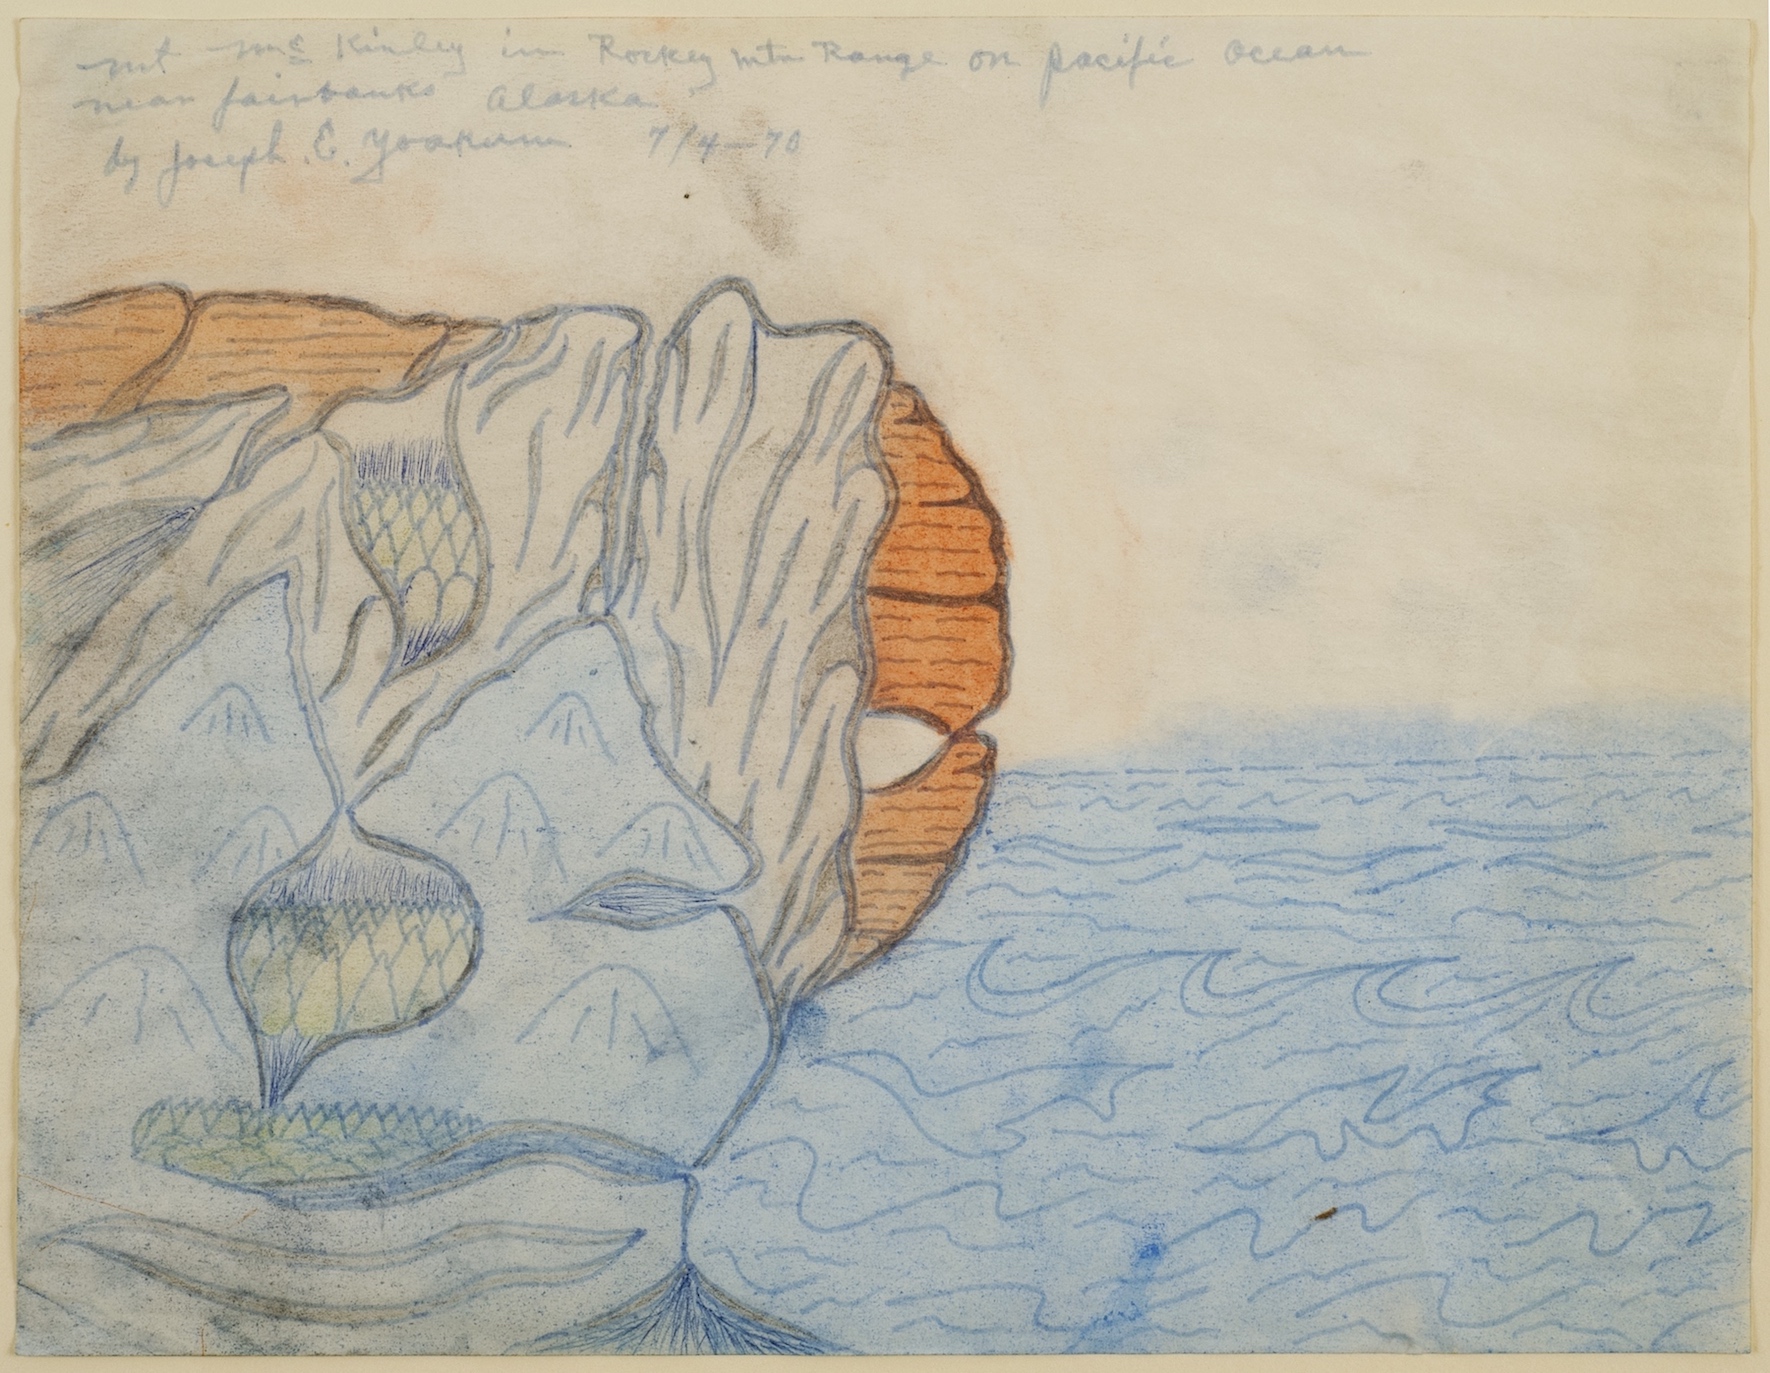 mt Mc Kinley in Rockey mtn Range on pacific Ocean
near fairbanks Alaska
by Joseph. E. Yoakum 7/4-70